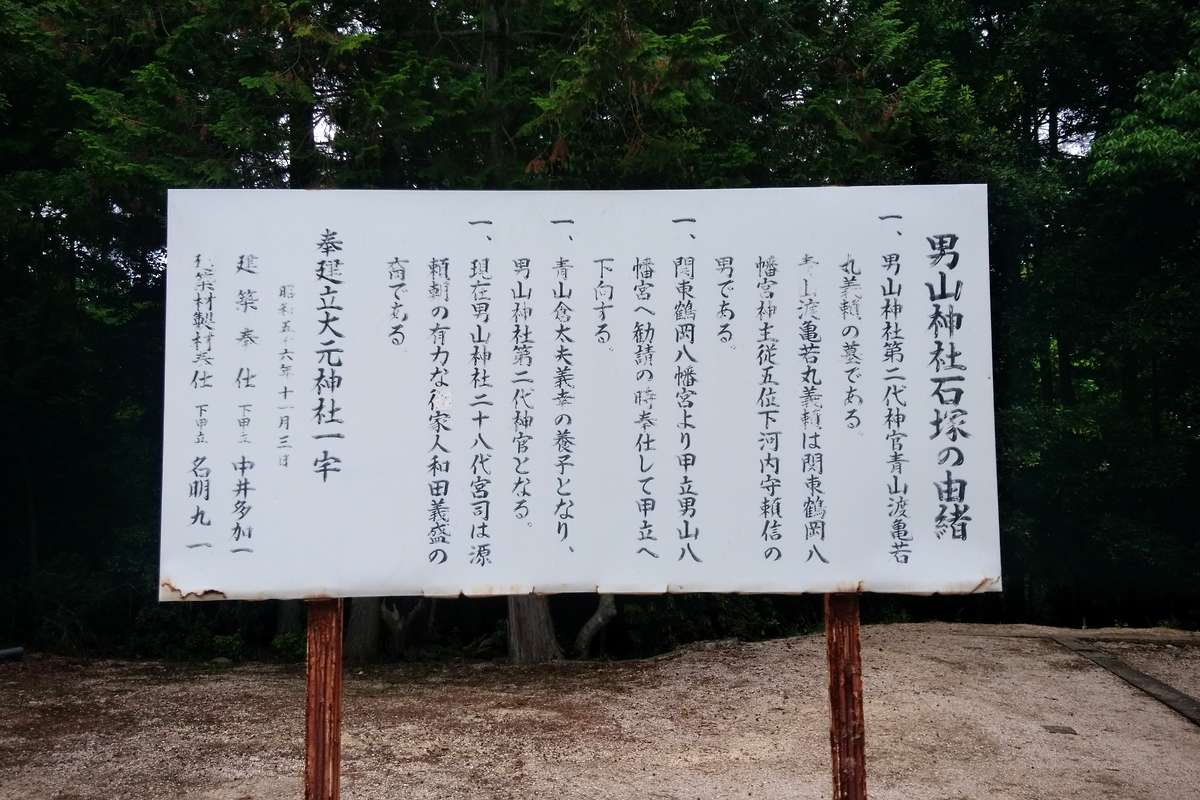 男山神社石塚の由緒
一、男山神社第二代神官青山渡亀若
丸義頼の墓である。
青山渡亀若丸義頼は関東鶴岡八
幡宮神主従五位下河内守頼信の
男である。
一、関東鶴岡八幡宮より甲立男山八
幡宮へ勧請の時奉仕して甲立へ
下向する。
一、青山倉太夫義幸の養子となり、
男山神社第二代神官となる。
一、現在男山神社二十八代宮司は源
頼朝の有力な御家人和田義盛の
裔である
奉建立大元神社一宇
昭和五十六年十一月三日
建築奉仕 下甲立 中井多加一
建築材製材奉仕 下甲立 名明九一